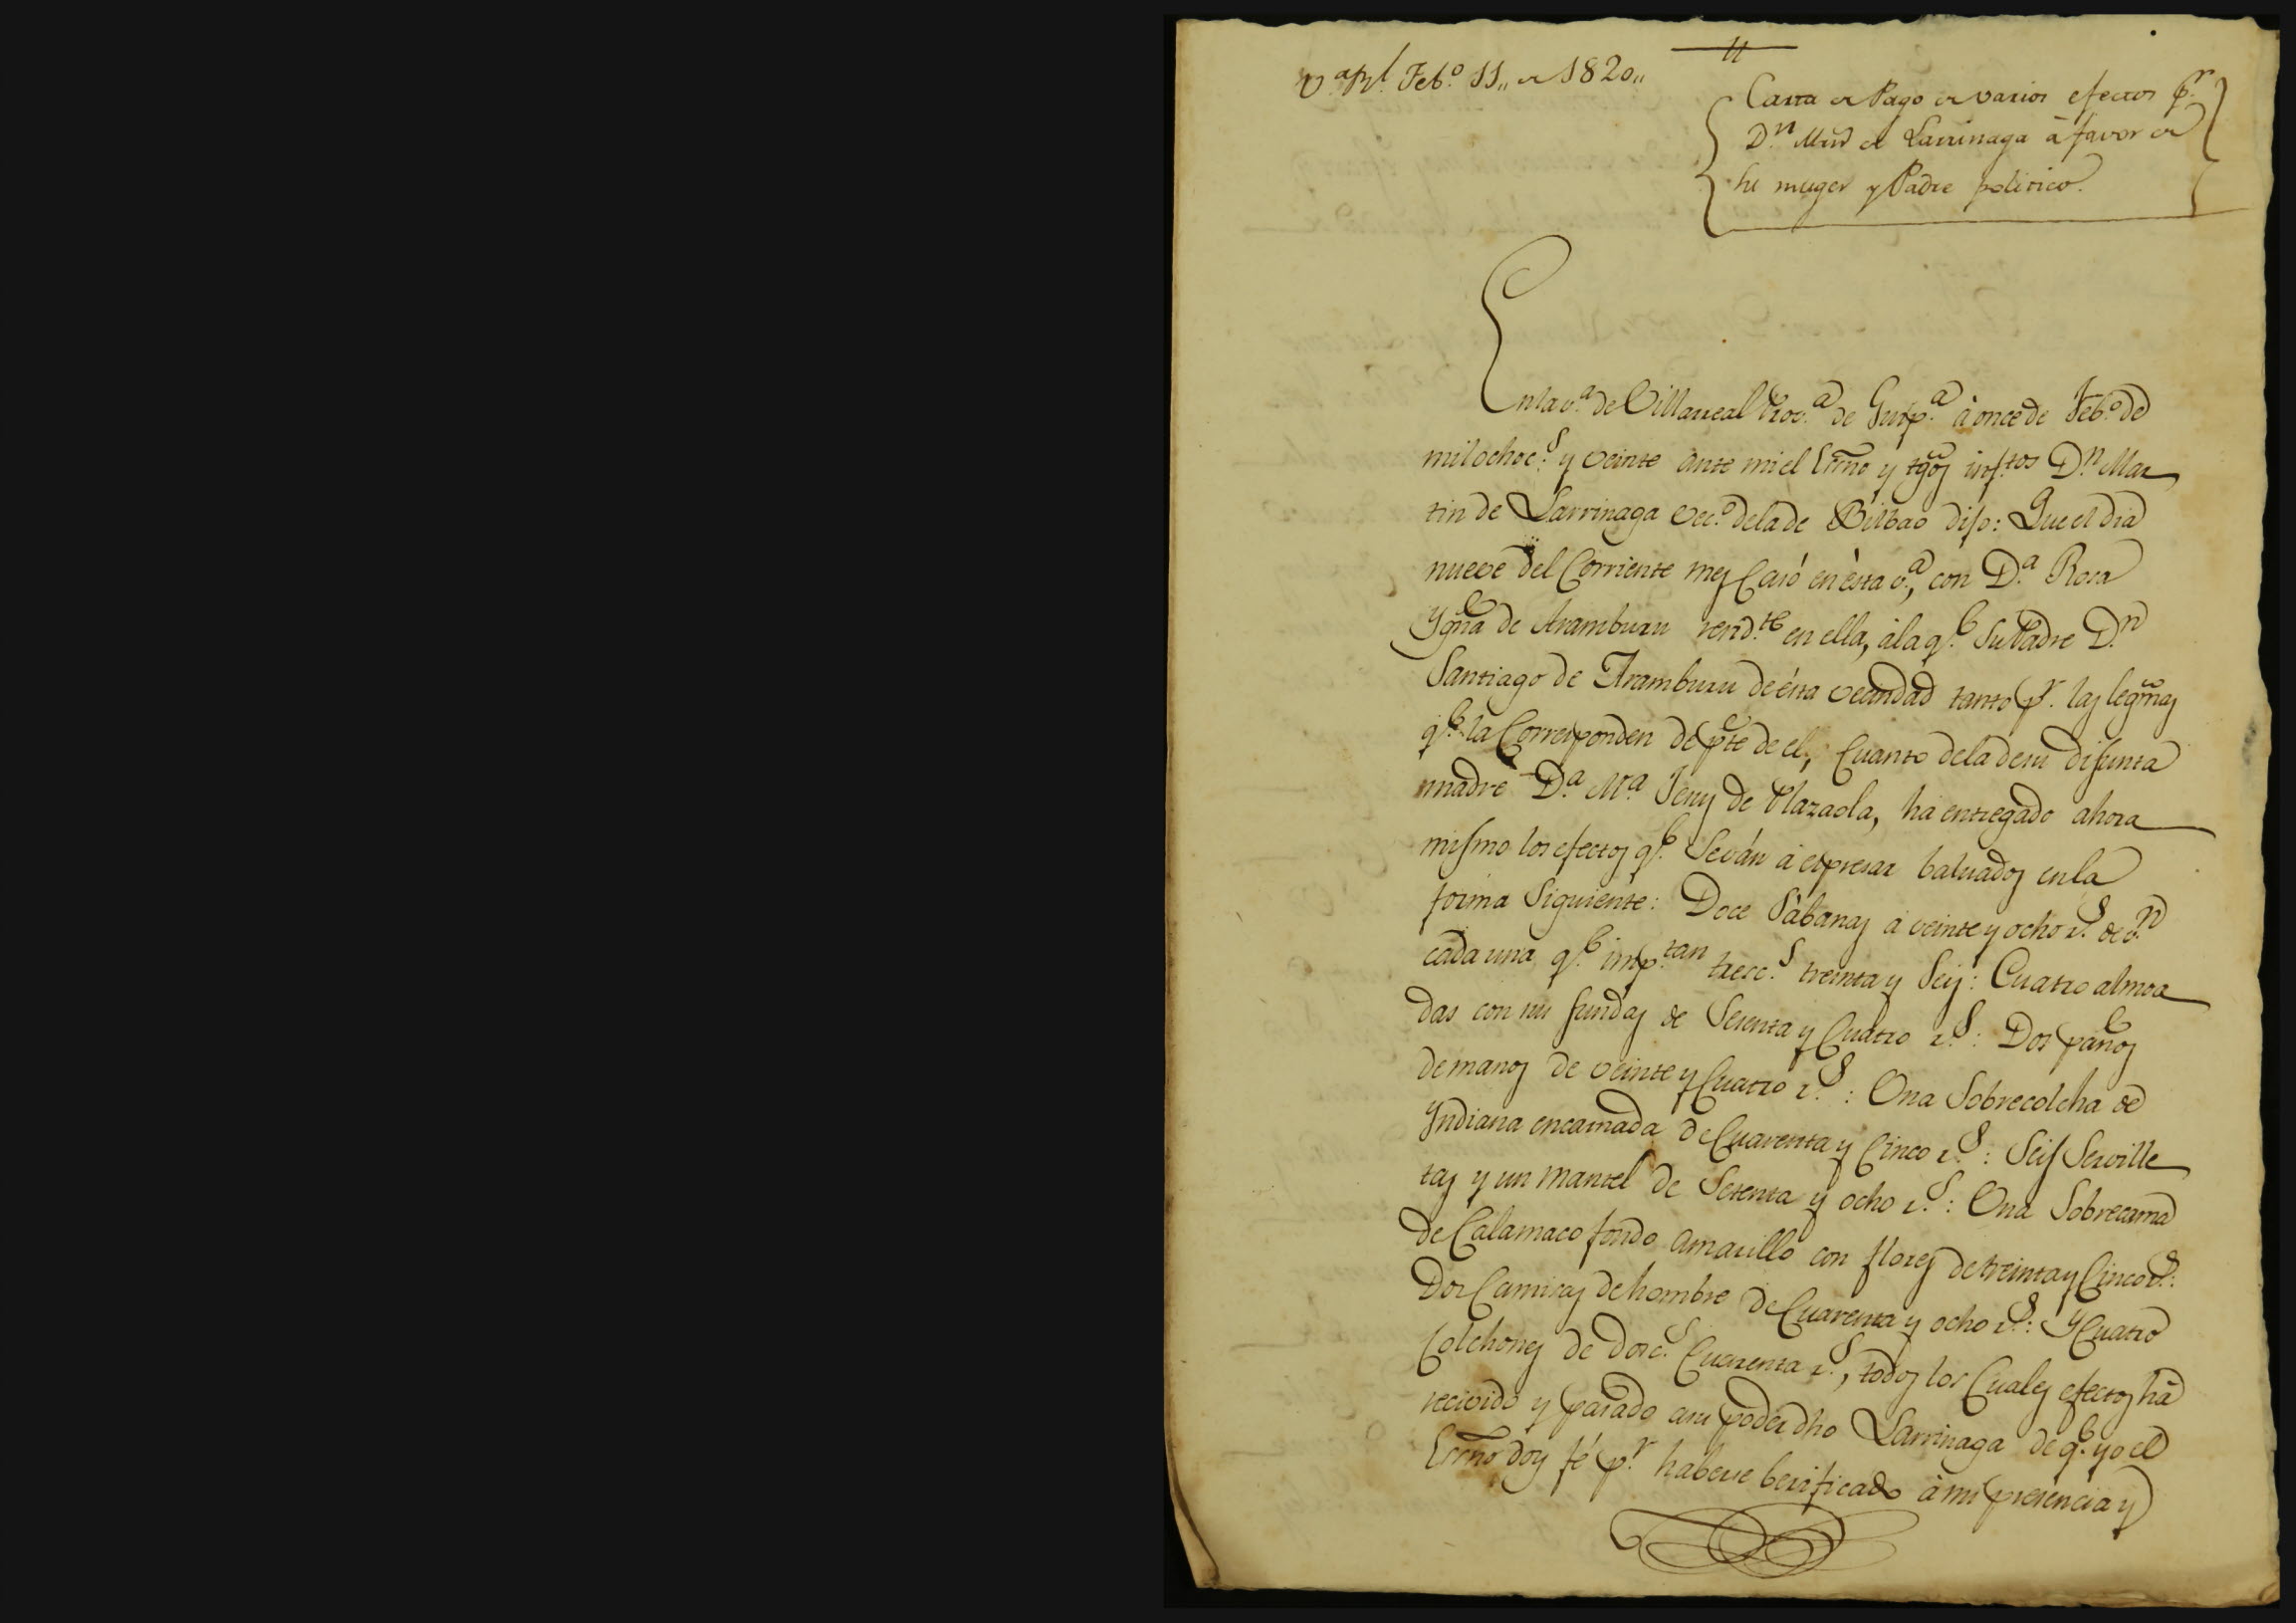 11
V.ª Rl. Feb.º 11,, de 1820,,
Carta de Pago de varios efectos p.r
D.n Mrn de Larrinaga à favor de
su muger y Padre politico.
En la v.a de Villarreal Prov.a de Guip.a à once de Feb.o de
mil ochoc.s y veinte ante mi el Esrño y tgõs inf.tos D.n Mar
tin de Larrinaga vec.o dela de Bilbao dijo: Que el dia
nueve del Corriente mes Casó en èsta v.a, con D.a Rosa
Ygña de Aramburu resid.te en ella, àla q.e su Padre D.n
Santiago de Aramburu de ésta vecindad tanto p.r las legmãs
q.e la Corresponden de pte de el, Cuanto dela desu difunta
madre D.a M.a Jesus de Plazaola, ha entregado ahora
mismo los efectos q.e Seván à espresar baluados en la
forma Siguiente: Doce Sàbanas à veinte y ocho r.s de v.n
cada una q.e imp.tan tresc.s treinta y Seis: Cuatro almoa
das con sus fundas de Sesenta y Cuatro r.s: Dos paños
de manos de veinte y Cuatro r.s: Una Sobrecolcha de
Yndiana encarnada de Cuarenta y Cinco r.s: Seis Serville
tas y un Mantel de Setenta y ocho r.s: Una Sobrecama
de Calamaco fondo amarillo con flores de treinta y Cinco r.s:
Dos Camisas de hombre de Cuarenta y ocho r.s: y Cuatro
Colchones de dosc.s Cuarenta r.s, todos los Cuales efectos hà
recivido y pasado asu poder dho Larrinaga de q.e yo el
Esrño doy fé p.r haberse berificado à mi presencia y